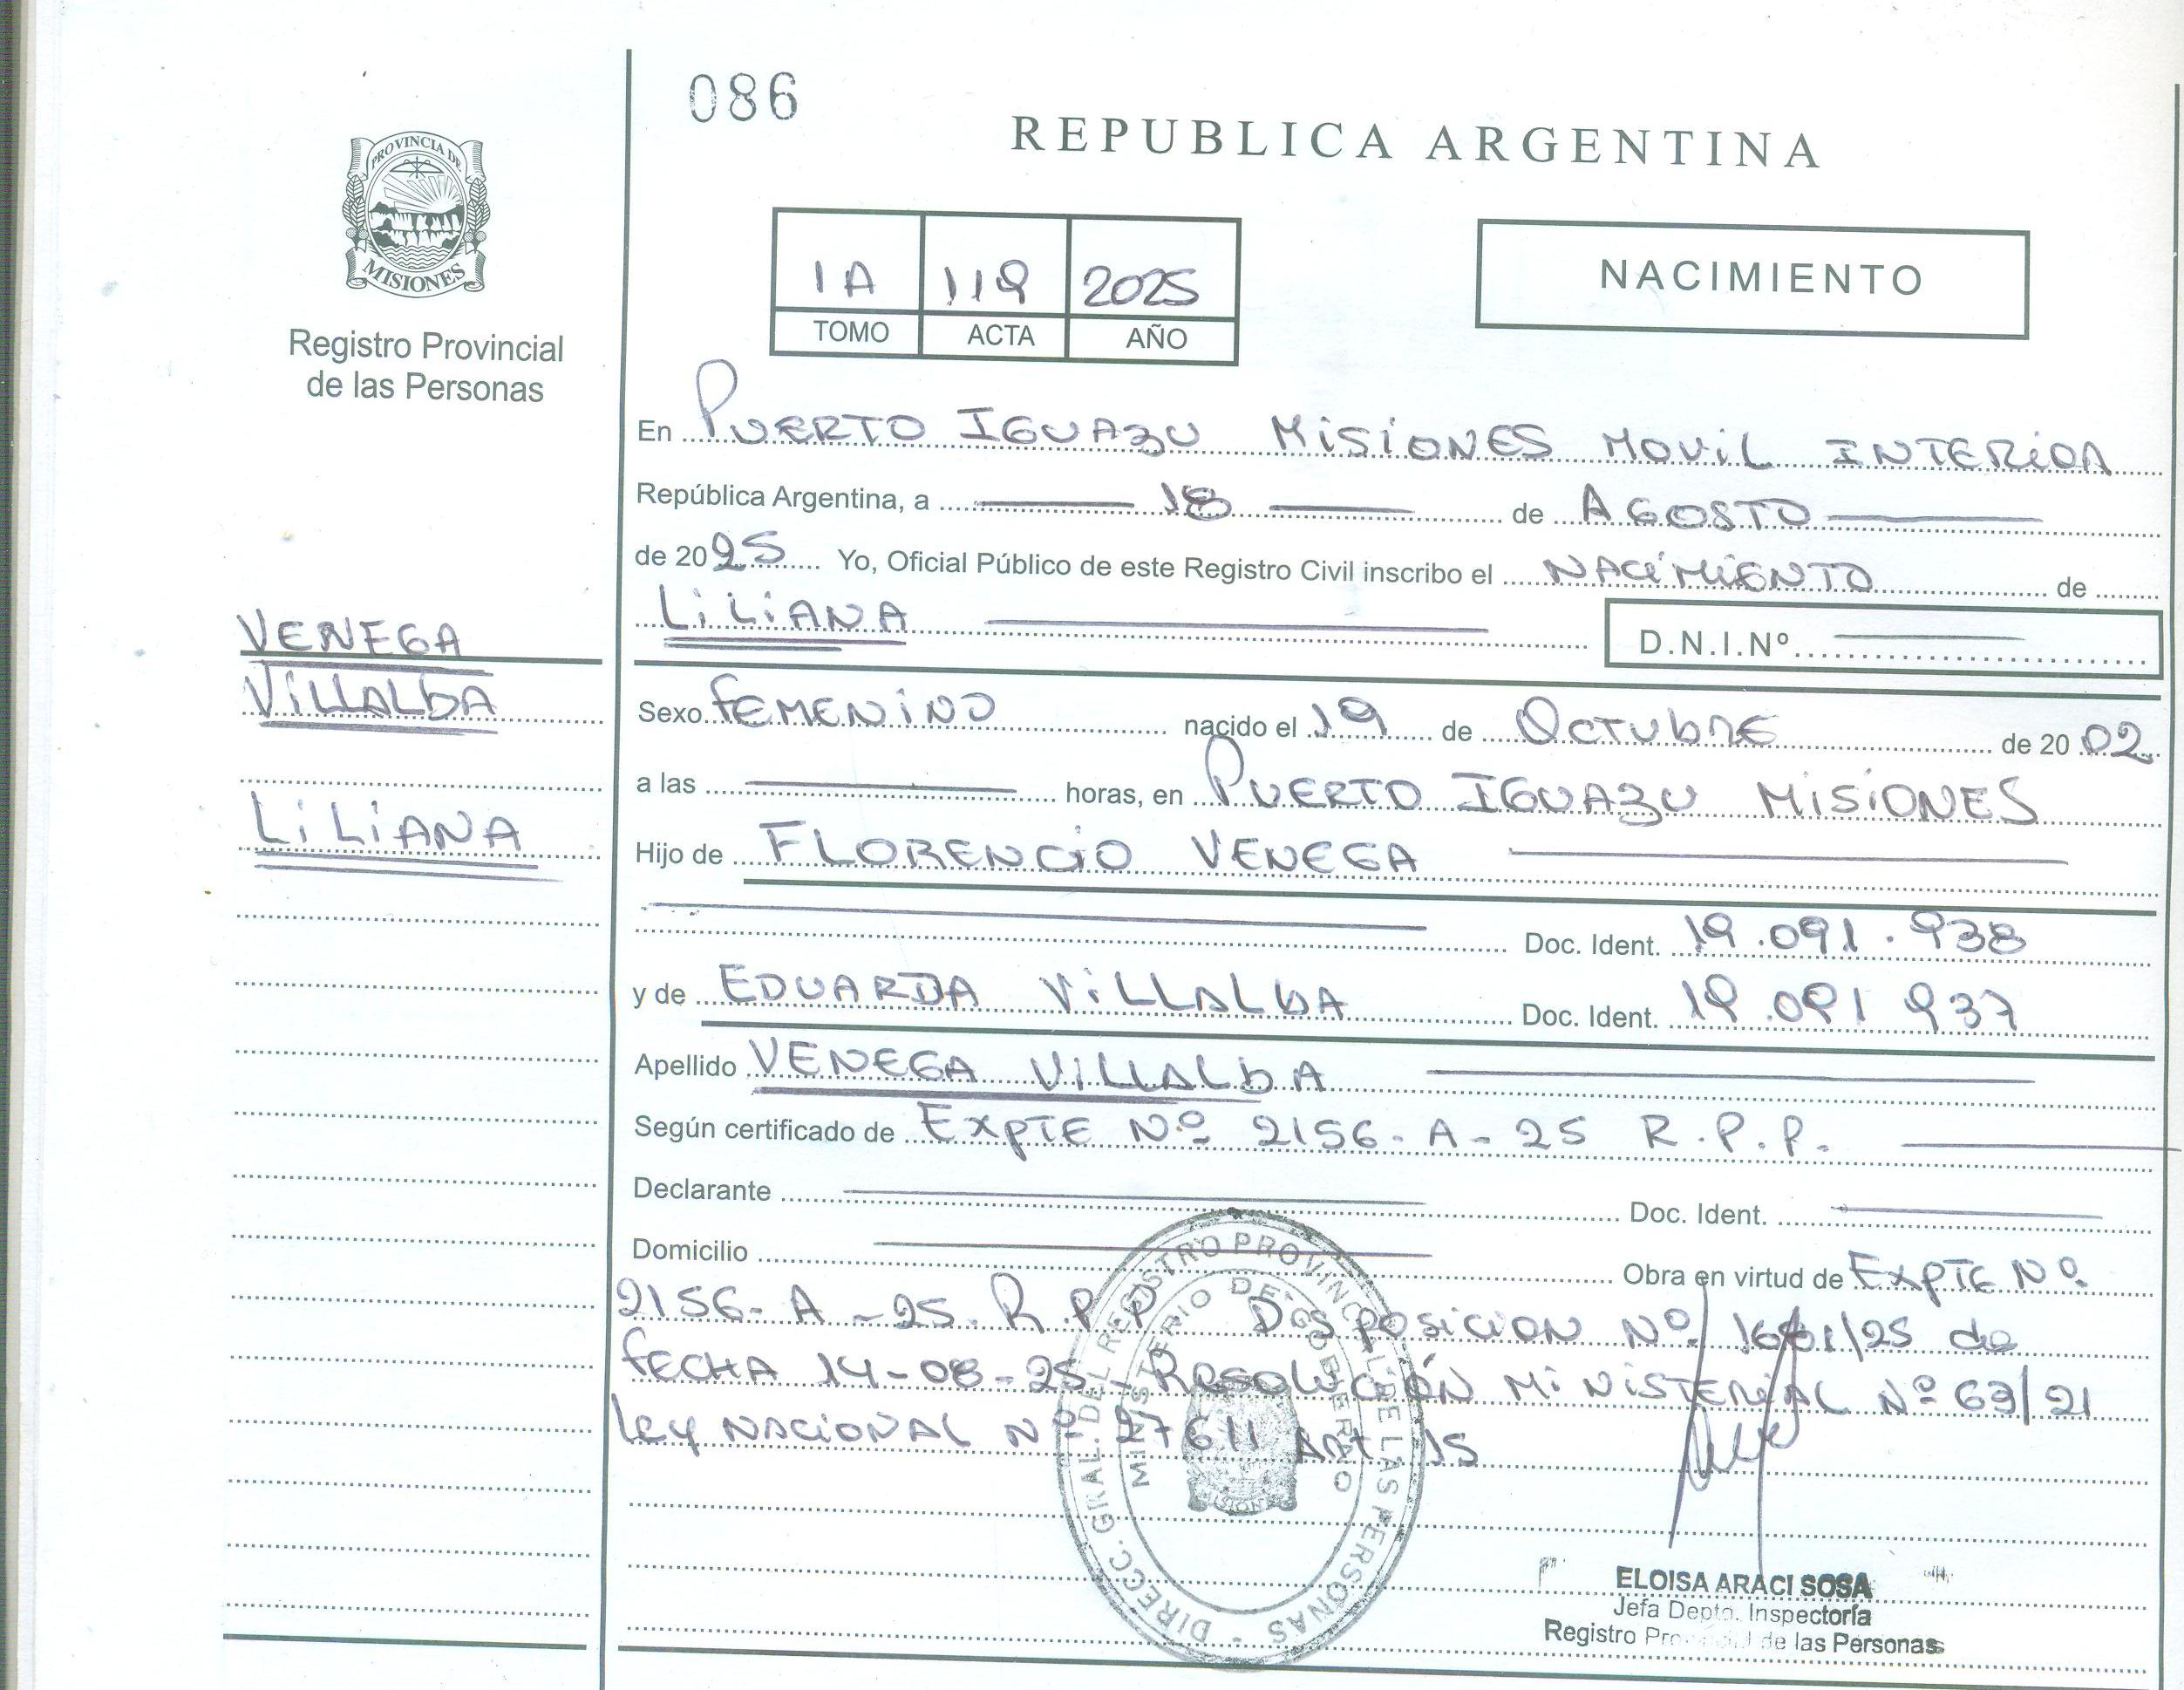 086
REPUBLICA ARGENTINA
PROVINCIA DE
MISIONES
Registro Provincial
de las Personas
1A 119 2025
TOMO ACTA AÑO
NACIMIENTO
En PUERTO IGUAZU MISIONES MOVIL INTERIOR
República Argentina, a 18 de AGOSTO
de 2025 Yo, Oficial Público de este Registro Civil inscribo el NACIMIENTO de
LILIANA
D.N.I.Nº
VENEGA
VILLALBA
LILIANA
Sexo FEMENINO nacido el 19 de OCTUBRE de 2002
a las horas, en PUERTO IGUAZU MISIONES
Hijo de FLORENCIO VENEGA
Doc. Ident. 19.091.938
y de EDUARDA VILLALBA Doc. Ident. 19.091 937
Apellido VENEGA VILLALBA
Según certificado de EXPTE Nº 2156-A-25 R.P.P.
Declarante Doc. Ident.
Domicilio Obra en virtud de EXPTE Nº
2156-A-25 R.P.P DISPOSICION Nº de
FECHA 14-08-25-RESOLUCIÓN MINISTERIAL Nº 63/21
Ley NACIONAL Nº 27611 ART 15
DIRECC. GRAL. DEL REGISTRO PROVINCIAL DE LAS PERSONAS
MINISTERIO DE GOBIERNO
ELOISA ARACI SOSA
Jefa Depto. Inspectoría
Registro Provincial de las Personas